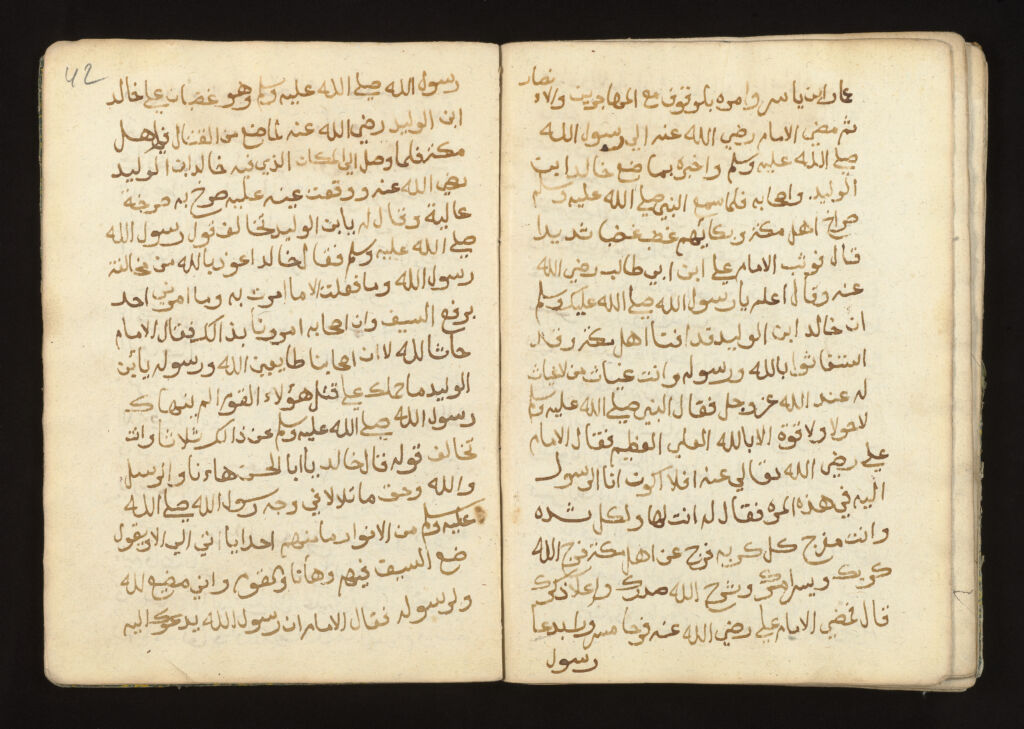 عمار ابن ياسر وامره بالوقوف مع المهاجرين والا
نصار
ثم مضي الامام رضي الله عنه الي رسول الله
صلي الله عليه وسلم واخبره بما صنع خالد ابن
الوليد واصحابه فلما سمع النبي صلي الله عليه وسلم
صراخ اهل مكة وبكائهم غضب غضبا شديدا
قال فوثب الامام علي ابن ابي طالب رضي الله
عنه وقال اعلم يا رسول الله صلي الله عليك وسلم
ان خالد ابن الوليد قد افنا اهل مكة وقد
استغاثوا بالله ورسوله وانت غياث من لا غياث
له عند الله عز وجل فقال النبي صلي الله عليه وسلم
لا حول ولا قوة الا بالله العلي العظيم فقال الامام
علي رضي الله تعالي عنه افلا اكون انا الرسول
اليه في هذه المره فقال له انت لها ولكل شده
وانت مفرج كل كربه فرج عن اهل مكة فرج الله
كربك ويسر امرك وشرح الله صدرك واعلا ذكرك
قال فمضي الامام علي رضي الله عنه فرحا مسرورا بدعا
رسول
42
رسول الله صلي الله عليه وسلم وهو غضبان علي خالد
ابن الوليد رضي الله عنه لما صنع من القتال في اهل
مكة فلما وصل الي المكان الذي فيه خالد ابن الوليد
رضي الله عنه ووقعت عينه عليه صرخ به صرخة
عالية وقال له يا بن الوليد تخالف قول رسول الله
صلي الله عليه وسلم فقال خالد اعوذ بالله من مخالفة
رسول الله وما فعلت الا ما امرت به وما امرني احد
برفع السيف وان اصحابه امرونا بذالك فقال الامام
حاشا لله لا ان اصحابنا طايعين الله ورسوله يا بن
الوليد ما حملك علي قتل هؤلاء القوم الم ينهاك
رسول الله صلي الله عليه وسلم عن ذالك ثلاثا وانت
تخالف قوله قال خالد يا ابا الحسن هاءنا والرسل
والله وحق ما تلالا في وجه رسول الله صلي الله
عليه وسلم من الانوار ما منهم احدا يا اتي الي الا ويقول
ضع السيف فيهم وها انا والقوم واني مضيع لله
ولرسوله فقال الامام ان رسول الله يدعوك اليه